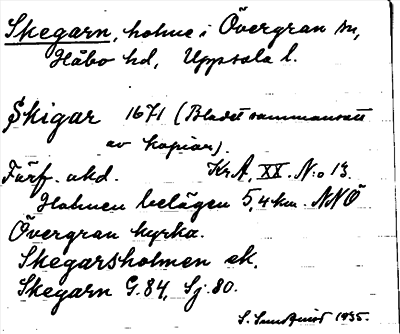 Skegarn, holme i Övergran sn,
Håbo hd, Uppsala l.
Skigar 1671 (Bladet sammansatt
av kopior).
Förf. okd. Kr.A. XX. N:o 13.
Holmen belägen 5,4 km. NNÖ
Övergran kyrka.
Skegarsholmen ek.
Skegarn G. 84, Sj. 80.
S. Sundquist 1935.